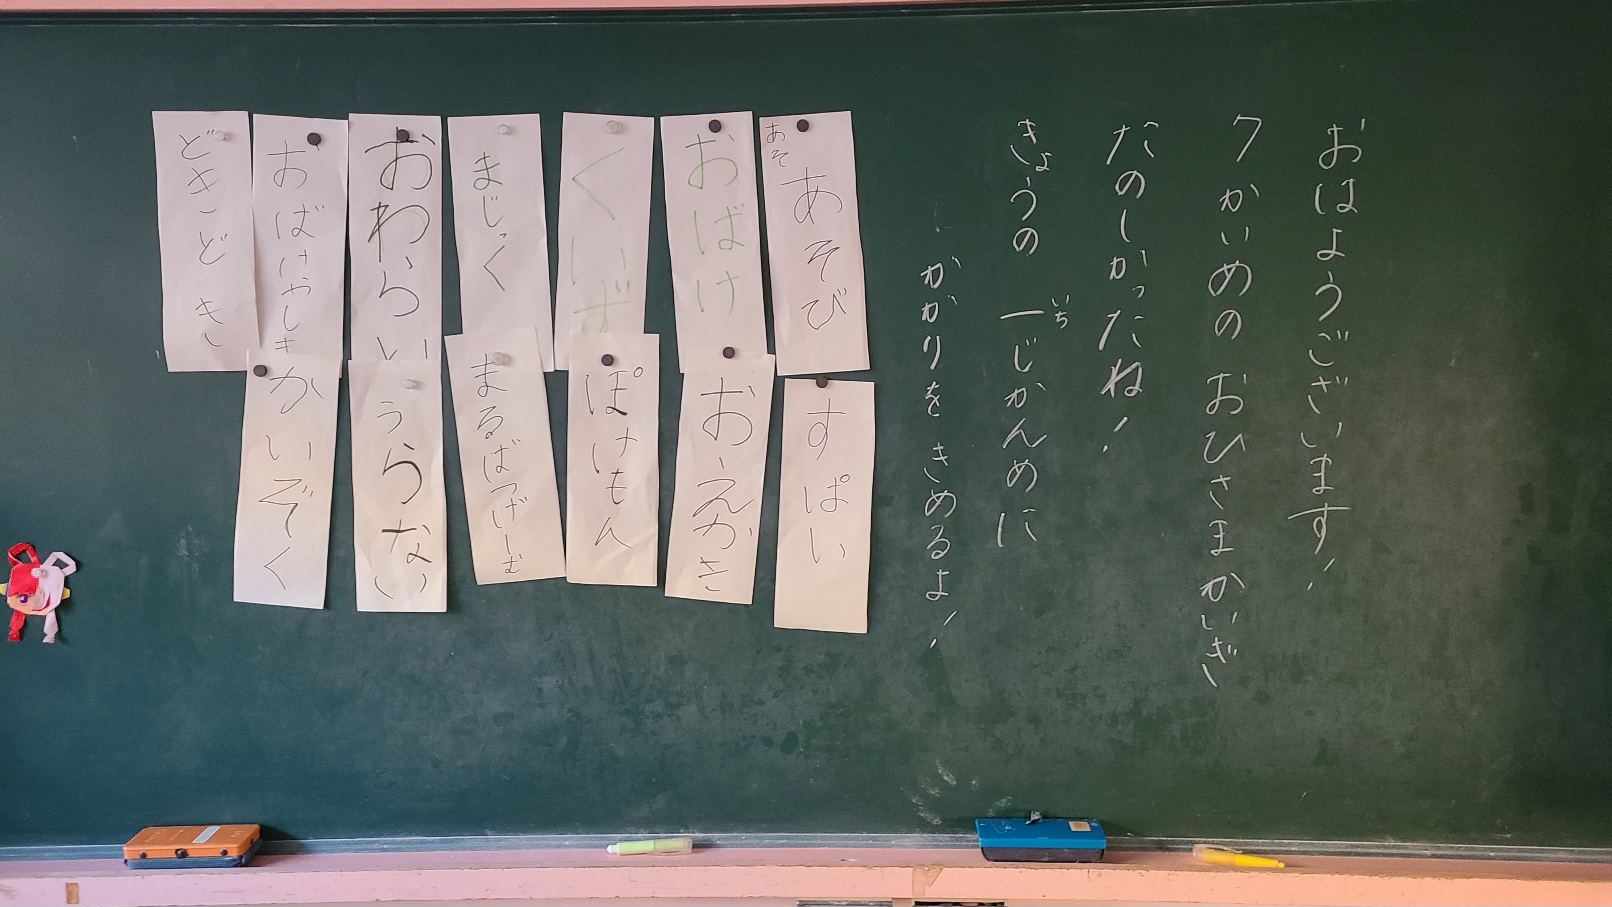 おはようございます！
7かいめの おひさまかいぎ
たのしかったね！
きょうの 一じかんめに
いち
がかりを きめるよ！
あそ
あそび
おばけ
くいず
まじっく
おわらい
おばけやしき
どきどき
すぱい
おえかき
ぽけもん
まるばつげーむ
うらない
かいぞく